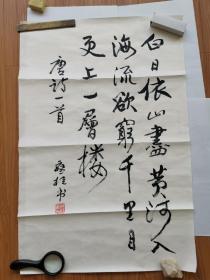 白日依山盡黄河入
海流欲窮千里目
更上一層楼
唐詩一首